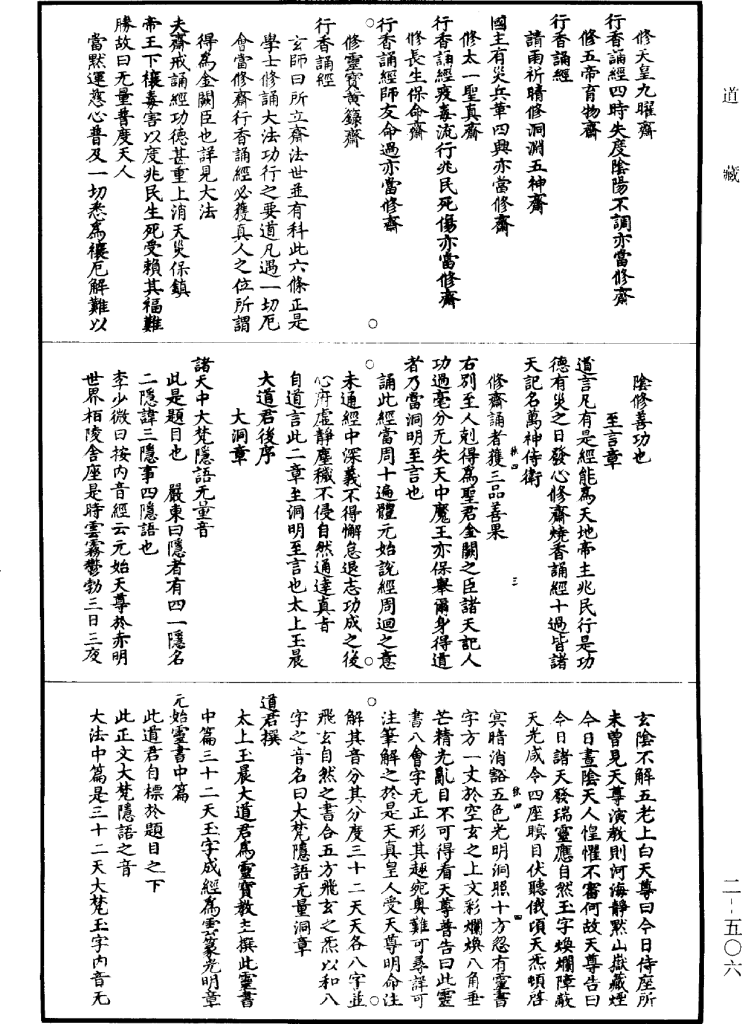 道藏
修天皇九曜齋
行香誦經四時失度陰陽不調亦當修齋
修五帝育物齋
行香誦經
請雨祈晴修洞淵五神齋
國主有災兵革四興亦當修齋
修太一聖真齋
行香誦經疫毒流行兆民死傷亦當修齋
修長生保命齋
行香誦經師友命過亦當修齋
修靈寶黃籙齋
行香誦經
玄師曰所立齋法世並有科此六條正是
學士修誦大法功行之要道凡遇一切厄
會當修齋行香誦經必獲真人之位所謂
得為金闕臣也詳見大法
夫齋戒誦經功德甚重上消天災保鎮
帝王下禳毒害以度兆民生死受賴其福難
勝故曰无量普度天人
當默運慈心普及一切悉為禳厄解難以
陰修善功也
至言章
道言凡有是經能為天地帝主兆民行是功
德有災之日發心修齋燒香誦經十過皆諸
天記名萬神侍衛
修齋誦者獲三品善果
右別至人剋得為聖君金闕之臣諸天記人
功過毫分无失天中魔王亦保舉爾身得道
者乃當洞明至言也
誦此經當周十遍體元始說經周迴之意
未通經中深義不得懈怠退志功成之後
心府虛靜塵穢不侵自然通達真音
自道言此二章至洞明至言也太上玉晨
大道君後序
大洞章
諸天中大梵隱語无量音
此是題目也　嚴東曰隱者有四一隱名
二隱諱三隱事四隱語也
李少微曰按內音經云元始天尊於赤明
世界栢陵舍座是時雲霧鬱勃三日三夜
玄陰不解五老上白天尊曰今日侍座所
未曾見天尊演教則河海靜默山嶽藏煙
今日晝陰天人惶懼不審何故天尊告曰
今日諸天發瑞靈應自然玉字煥爛障蔽
天光咸令四座瞑目伏聽俄頃天炁頓啓
冥暗消豁五色光明洞照十方忽有靈書
字方一丈於空玄之上文彩爛煥八角垂
芒精光亂目不可得看天尊普告曰此靈
書八會字无正形其趣宛奧難可尋詳可
注筆解之於是天真皇人受天尊明命注
解其音分其分度三十二天天各八字並
飛玄自然之書合五方飛玄之炁以和八
字之音名曰大梵隱語无量洞章
道君撰
太上玉晨大道君為靈寶教主撰此靈書
中篇三十二天玉字成經為雲篆光明章
元始靈書中篇
此道君自標於題目之下
此正文大梵隱語之音
大法中篇是三十二天大梵玉字內音无
二--五〇六